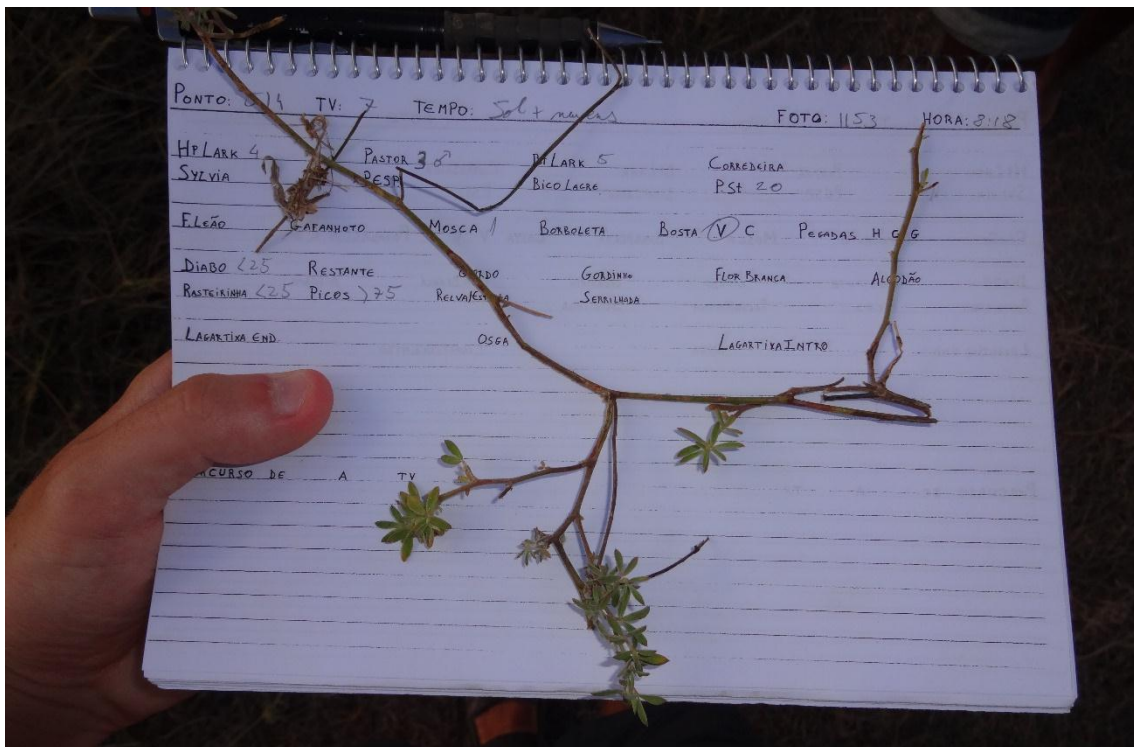 PONTO: TV: 7 TEMPO: Sol + nuvens FOTO: 1153 HORA: 8:18
HP LARK 4 PASTOR 3 ♂ LARK 5 CORREDEIRA
SYLVIA BICO LACRE P.St 20
F. LEÃO GAFANHOTO MOSCA 1 BORBOLETA BOSTA V C PEGADAS H C G
DIABO <25 RESTANTE GORDINHO FLOR BRANCA ALGODÃO
RASTEIRINHA <25 PICOS >75 SERRILHADA
LAGARTIXA END. OSGA LAGARTIXA INTRO
DE A TV